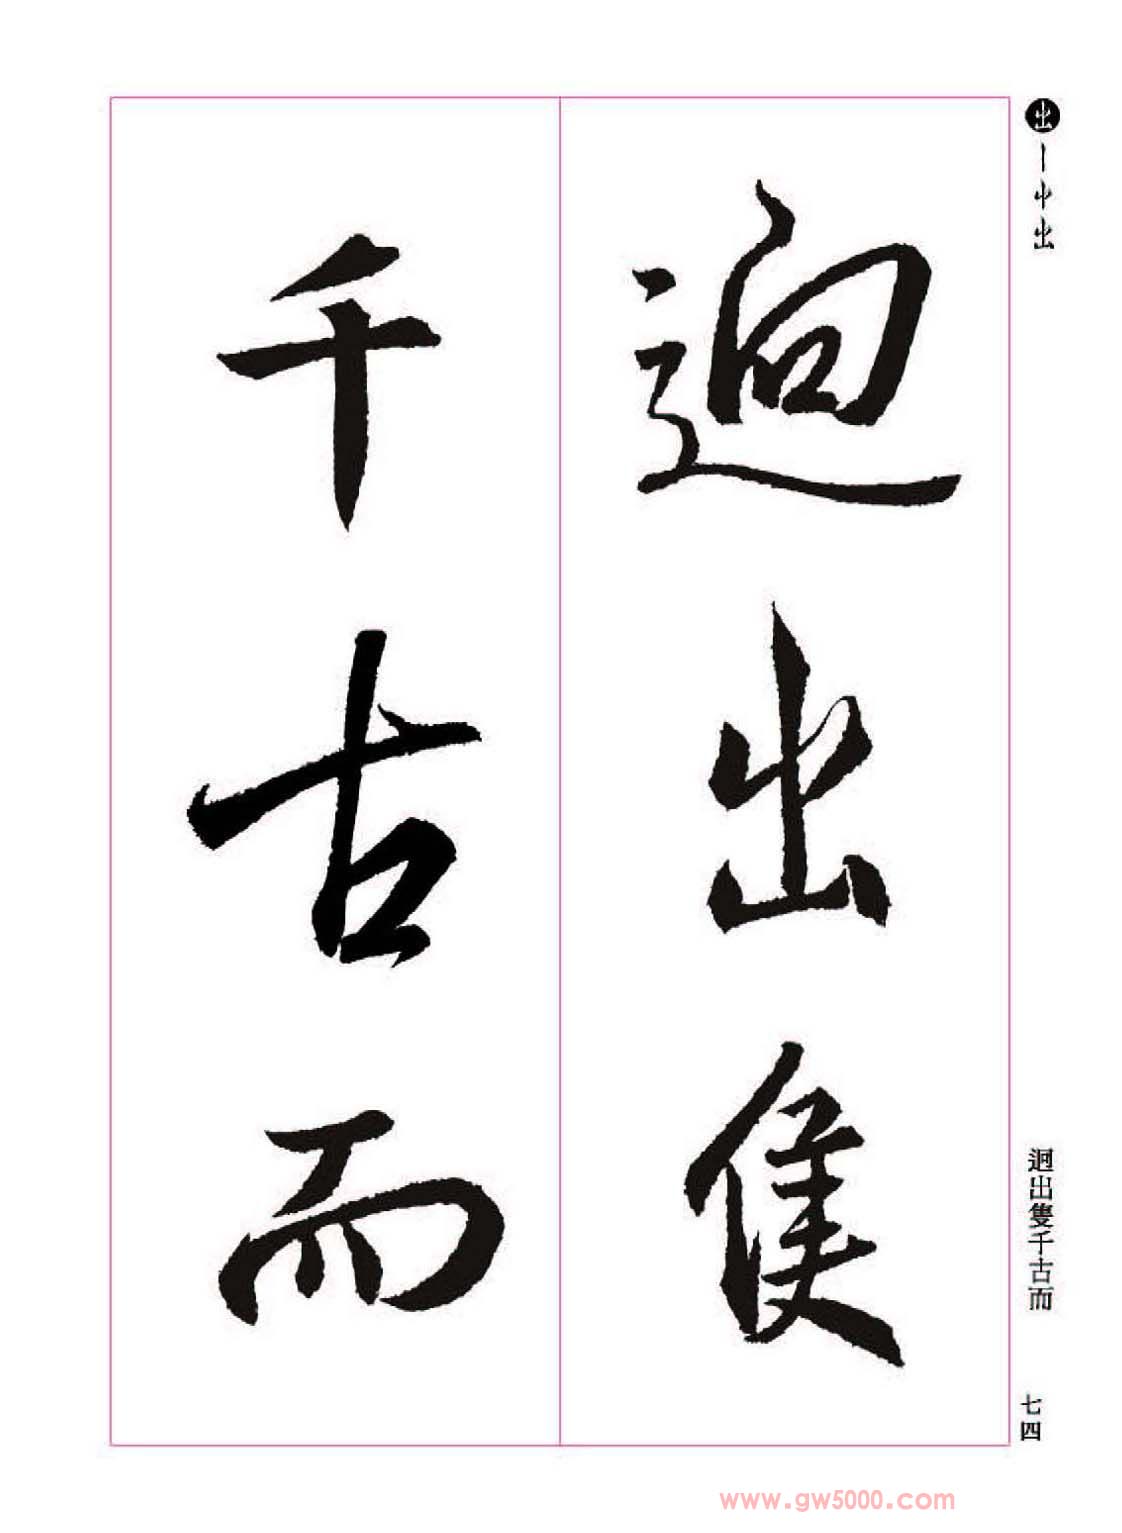 出丨屮出
迥出隻千古而
七四
迥出隻
千古而
www.gw5000.com